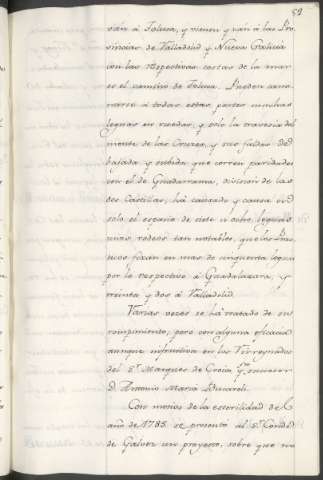 52
ván á Toluca, y vienen y ván á las Pro-
vincias de Valladolid y Nueva Galicia
con las respectivas costas de la mar
es el camino de Toluca. Pueden cami-
narse á todas estas partes muchas
leguas en ruedas, y sólo la travesia del
monte de las Cruzes, y sus faldas de
bajada y subida que corren paridades
con el de Guadarrama, division de las
dos Castillas, há causado y causa en
solo el espacio de siete ú ocho leguas
unos rodeos tan notables, que los Prac-
ticos fixan en mas de cinquenta leguas
por lo respectivo á Guadalaxara, y
treinta y dos á Valladolid.
Varias vezes se há tratado de su
rompimiento, pero con alguna eficacia
aunque infructiva en los Virreynatos
del Sr. Marques de Croix y su sucesor
D. Antonio Maria Bucareli.
Con motivo de la esterilidad del
año de 1785 se presentó al Sr. Conde
de Galvez un proyecto, sobre que su